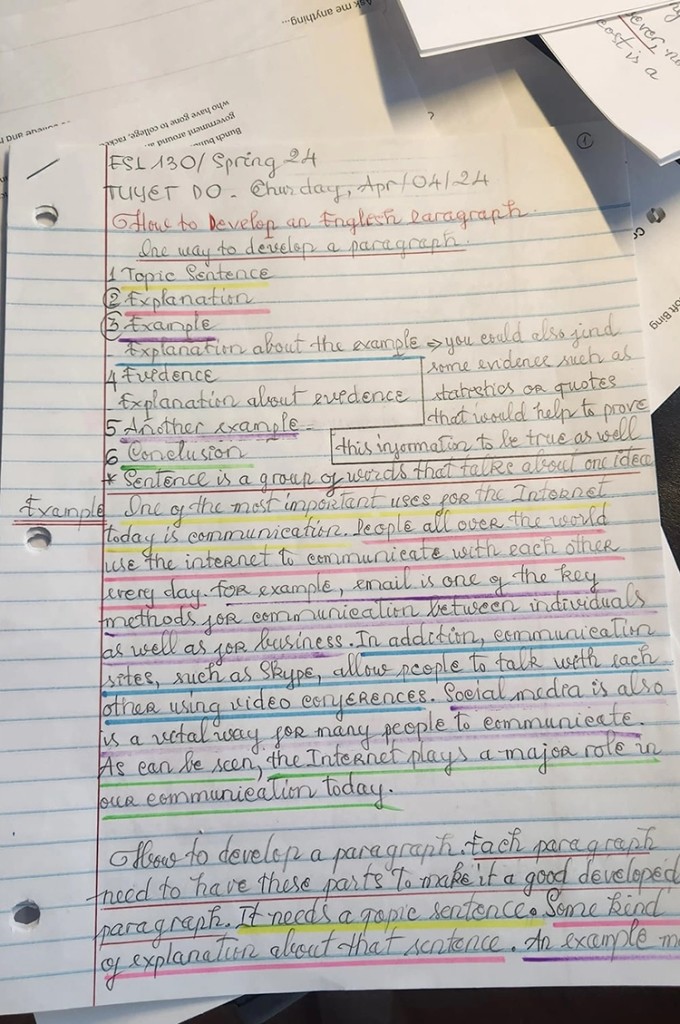 Ask me anything...
who have gone to college,
government around
Bunch
ever, no
cost is a
?
①
ESL 130/ Spring 24
TUYET DO - Thurday, Apr/04/24
How to Develop an English Paragraph.
One way to develop a paragraph.
1 Topic Sentence
② Explanation
③ Example
- Explanation about the example → you could also find
some evidence such as
4 Evedence
statistics or quotes
- Explanation about evedence
that would help to prove
5 Another example
this information to be true as well
6 Conclusion
* Sentence is a group of words that talks about one idea
Example One of the most important uses for the Internet
today is communication. People all over the world
use the internet to communicate with each other
every day. for example, email is one of the key
methods for communication between individuals
as well as for business. In addition, communication
sites, such as Skype, allow people to talk with each
other using video conferences. Social media is also
is a vital way for many people to communicate.
As can be seen, the Internet plays a major role in
our communication today.
How to develop a paragraph. Each paragraph
need to have these parts to make it a good developed
paragraph. It needs a topic sentence. Some kind
of explanation about that sentence. An example